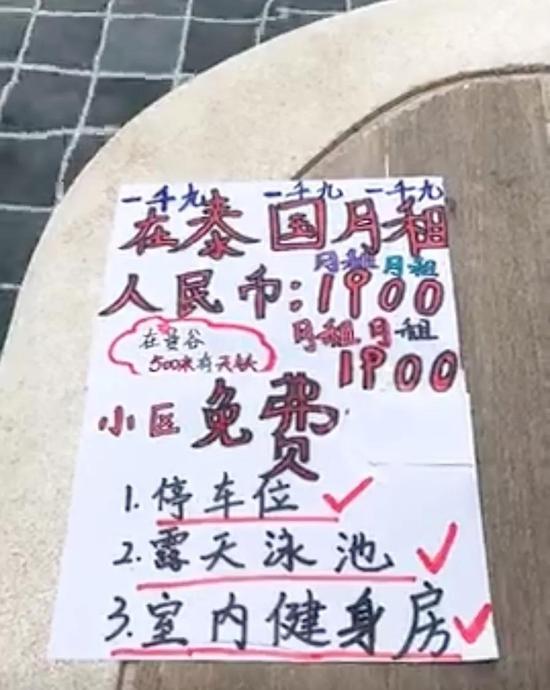 一千九 一千九 一千九
在泰国月租
月租 月租
人民币:1900
月租月租
在曼谷
1900
500米有天铁
小区免费
1.停车位✓
2.露天泳池✓
3.室内健身房✓